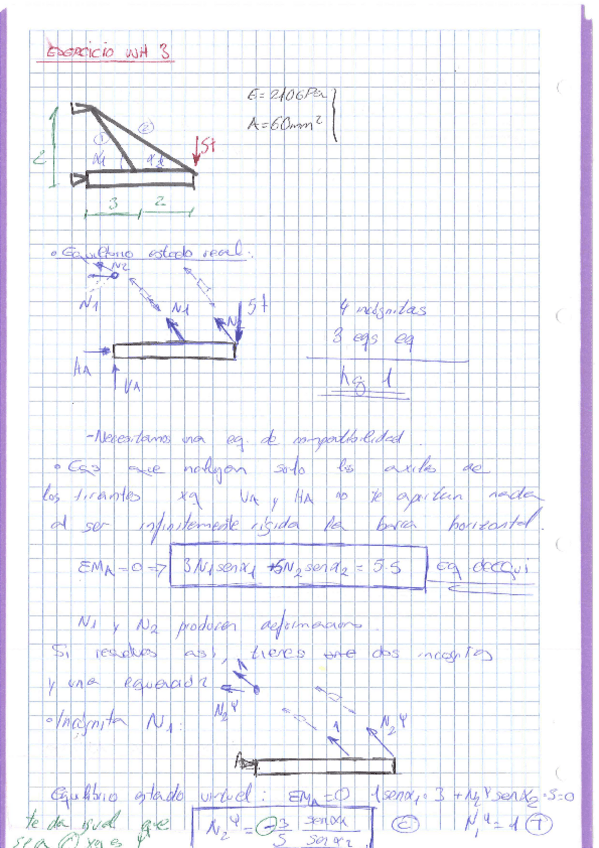 EJERCICIO WH 3
E = 210 GPa
A = 60 mm²
① ②
α1 α2
5t
2
3 2
• Equilibrio estado real:
N2
N1
N1 N2 5t
HA
VA
4 incógnitas
3 eqs eq
hg 1
- Necesitamos una eq. de compatibilidad.
• Eqs que hallan solo los axiles de
los tirantes xq VA y HA no te aportan nada
al ser infinitamente rígida la barra horizontal.
ΣMA = 0 => 3N1 senα1 + 5N2 senα2 = 5·5 eq de equi
N1 y N2 producen deformaciones.
Si resuelves así, tienes dos incógnitas
y una ecuación
• Incógnita N1:
N2ψ
1 N2ψ
A
Equilibrio estado virtual: ΣMA = 0 1 senα1 · 3 + N2ψ senα2 · 5 = 0
te da igual que
sea xq es
N2ψ = - 3/5 senα1/senα2 Ⓒ N1ψ = 1 Ⓣ